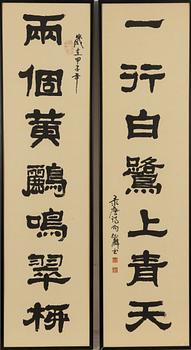 兩個黃鸝鳴翠柳
歲在甲子年
一行白鷺上青天